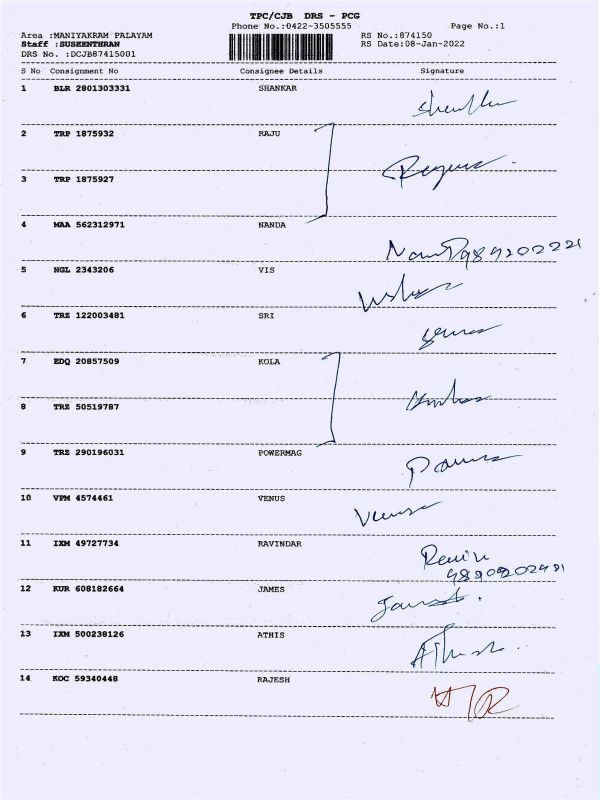 TPC/CJB DRS - PCG
Phone No.:0422-3505555 Page No.:1
Area :MANIYAKRAM PALAYAM RS No.:874150
Staff :SUSEENTHRAN RS Date:08-Jan-2022
DRS No. :DCJB87415001
S No Consignment No Consignee Details Signature
1 BLR 2801303331 SHANKAR
2 TRP 1875932 RAJU
3 TRP 1875927
4 MAA 562312971 NANDA
5 NGL 2343206 VIS
6 TRZ 122003481 SRI
7 EDQ 20857509 KOLA
8 TRZ 50519787
9 TRZ 290196031 POWERMAG
10 VPM 4574461 VENUS
11 IXM 49727734 RAVINDAR
12 KUR 608182664 JAMES
13 IXM 500238126 ATHIS
14 KOC 59340448 RAJESH